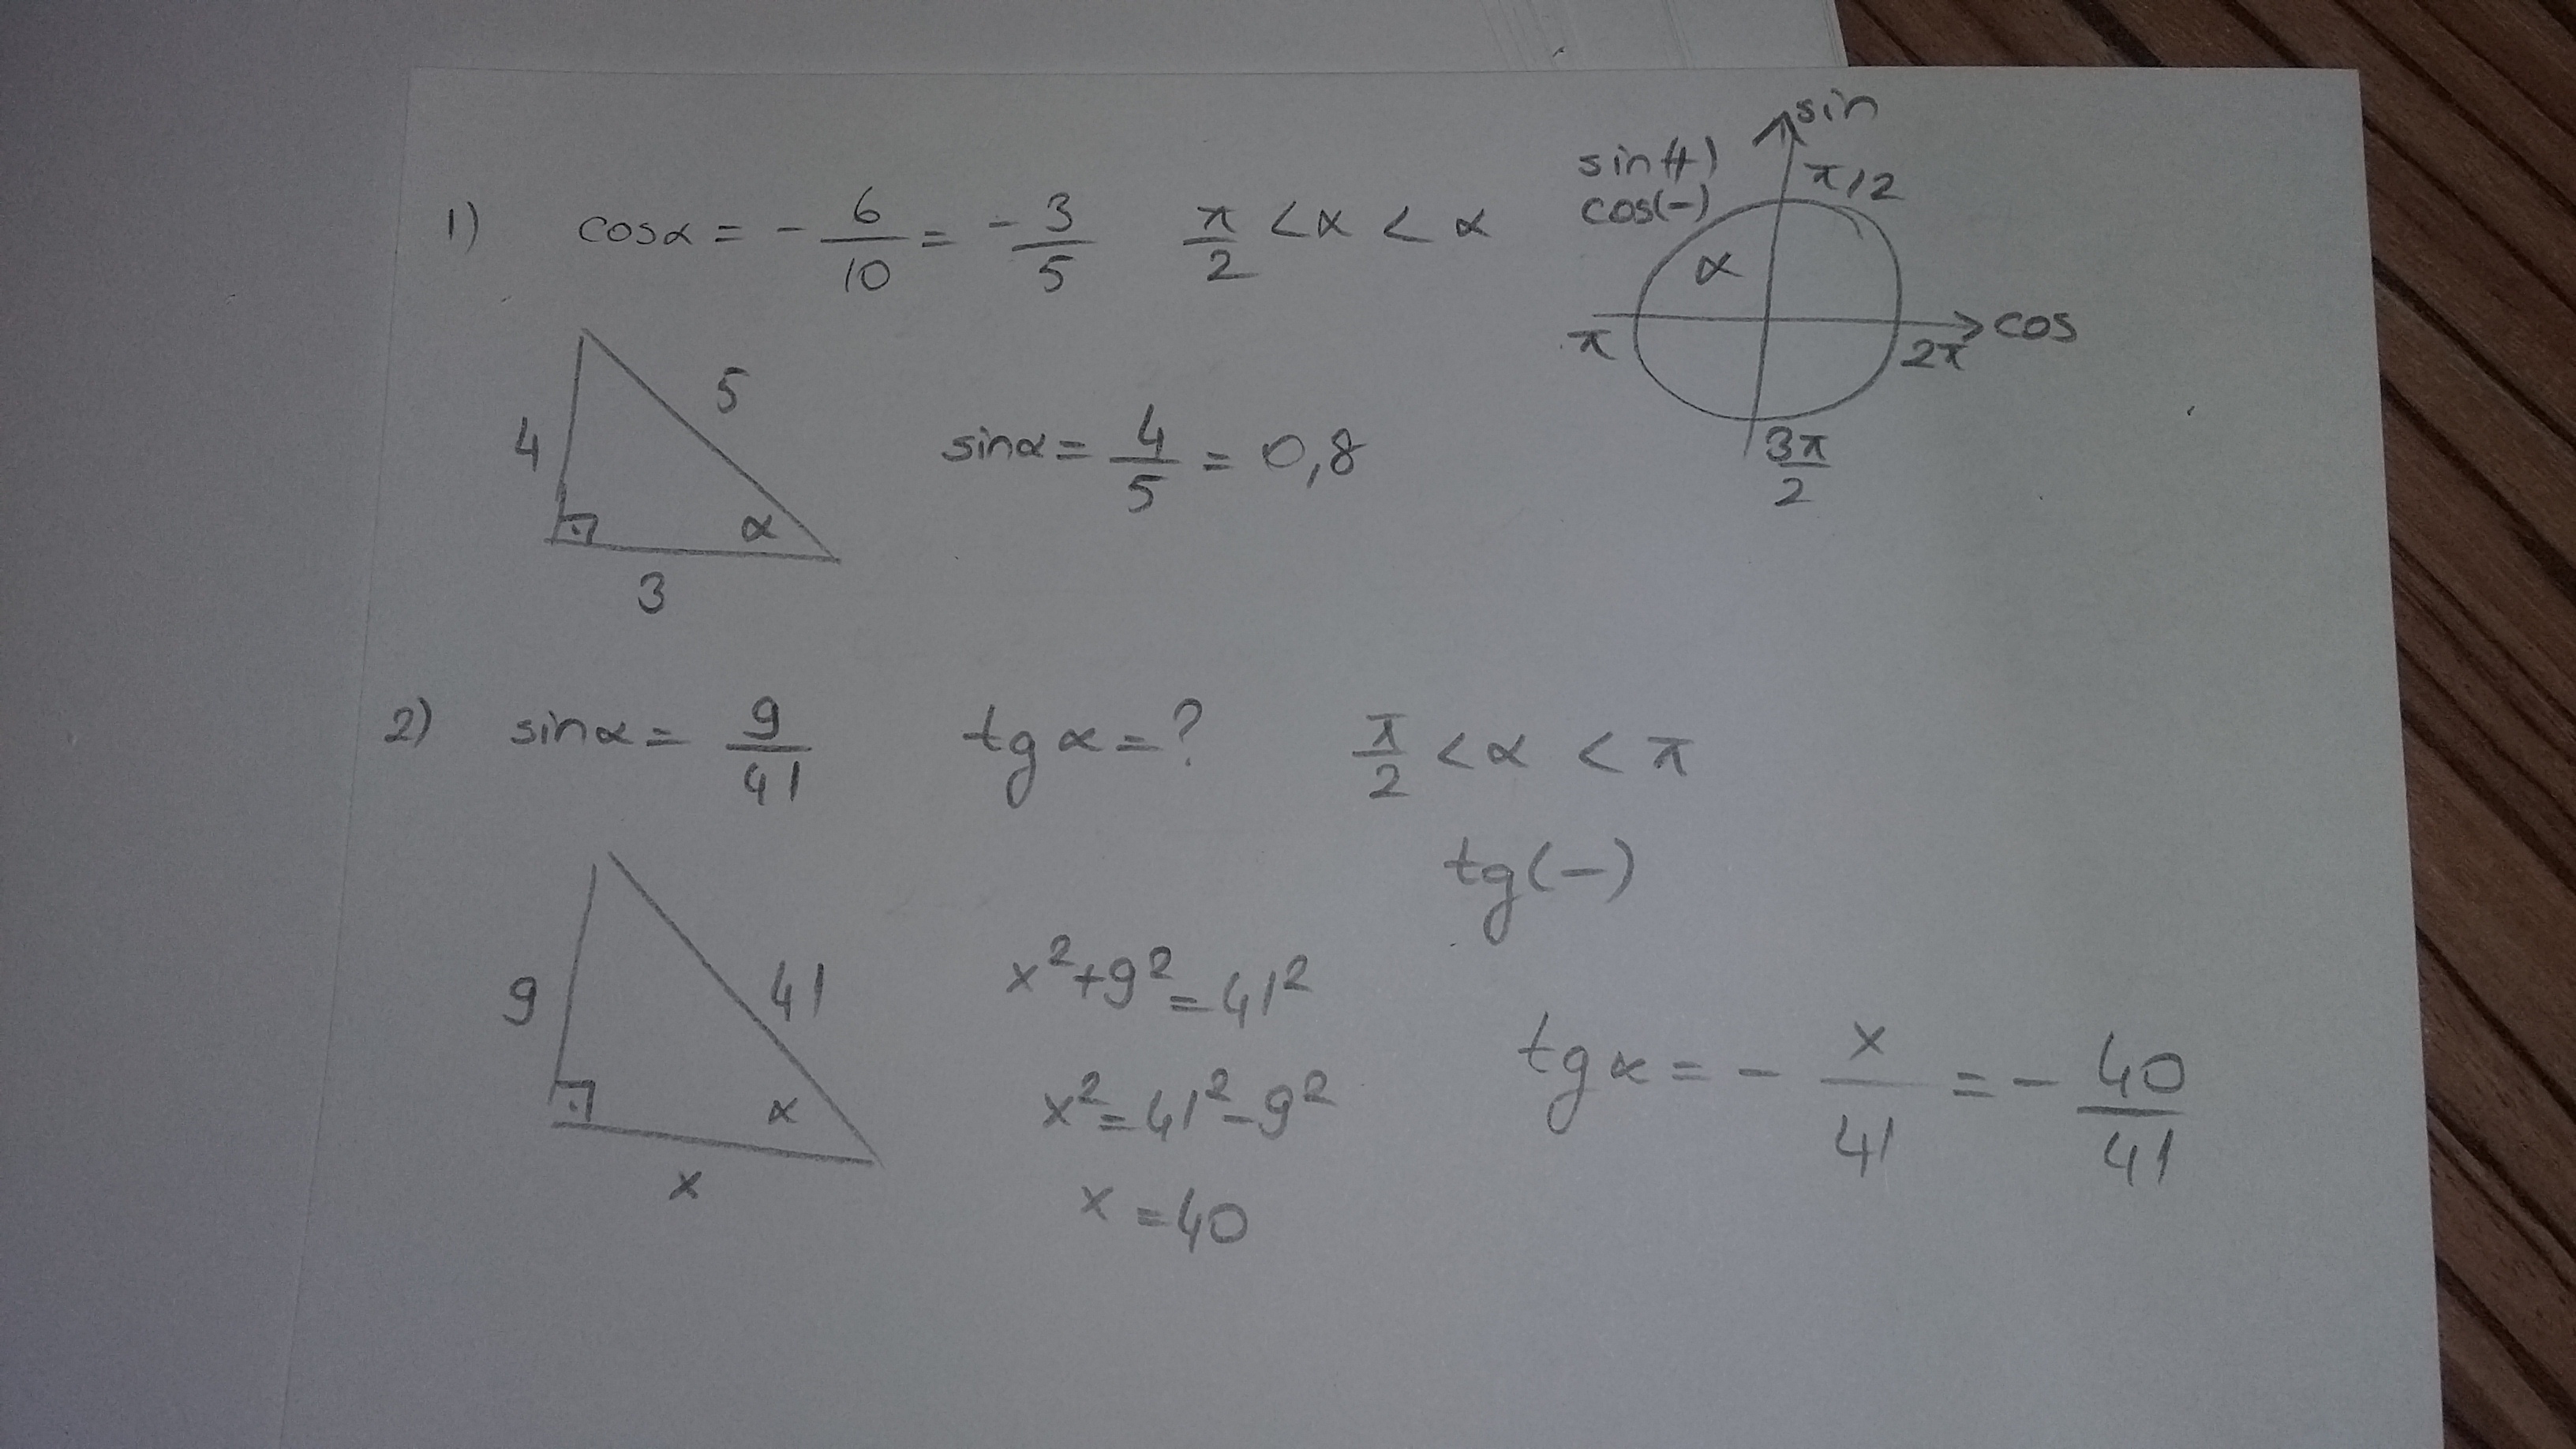 1) cosα = - 6/10 = - 3/5 π/2 < α < α
sin(+)
cos(-)
sin
π/2
α
π
cos
2π
3π/2
4
5
α
3
sinα = 4/5 = 0,8
2) sinα = 9/41 tg α = ? π/2 < α < π
tg(-)
9
41
α
x
x²+9² = 41²
x² = 41²-9²
x = 40
tg α = - x/41 = - 40/41